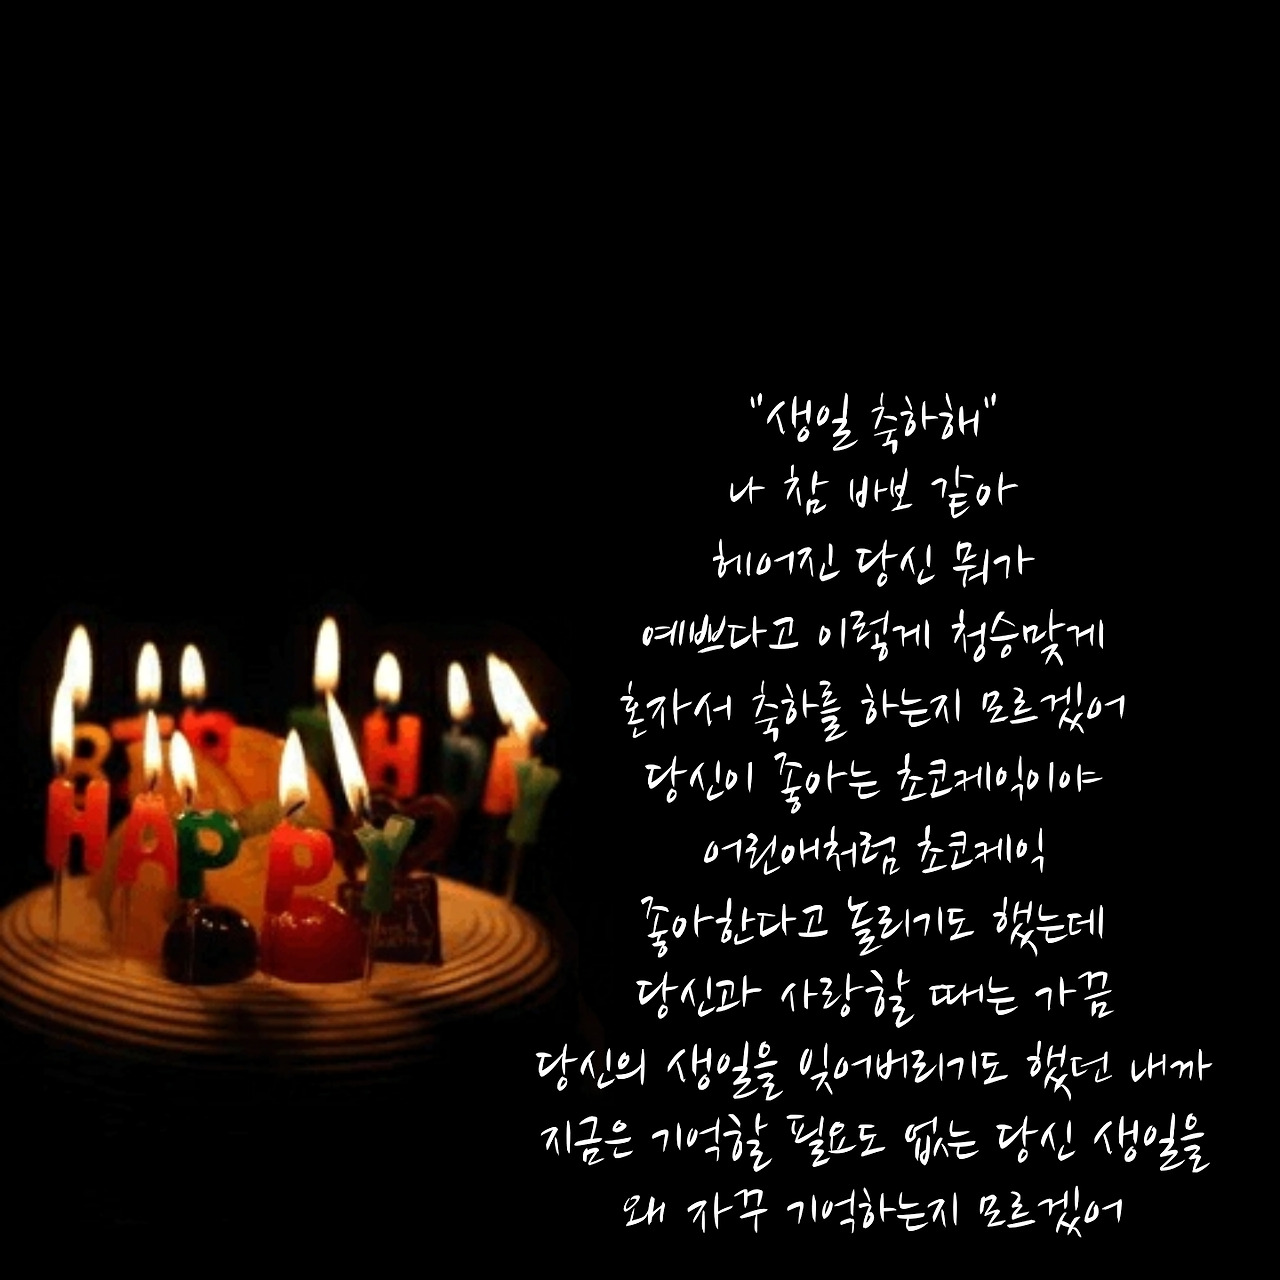 "생일 축하해"
나 참 바보 같아
헤어진 당신 뭐가
예쁘다고 이렇게 청승맞게
혼자서 축하를 하는지 모르겠어
당신이 좋아는 초코케익이야
어린애처럼 초코케익
좋아한다고 놀리기도 했는데
당신과 사랑할 때는 가끔
당신의 생일을 잊어버리기도 했던 내까
지금은 기억할 필요도 없는 당신 생일을
왜 자꾸 기억하는지 모르겠어
HAPPY